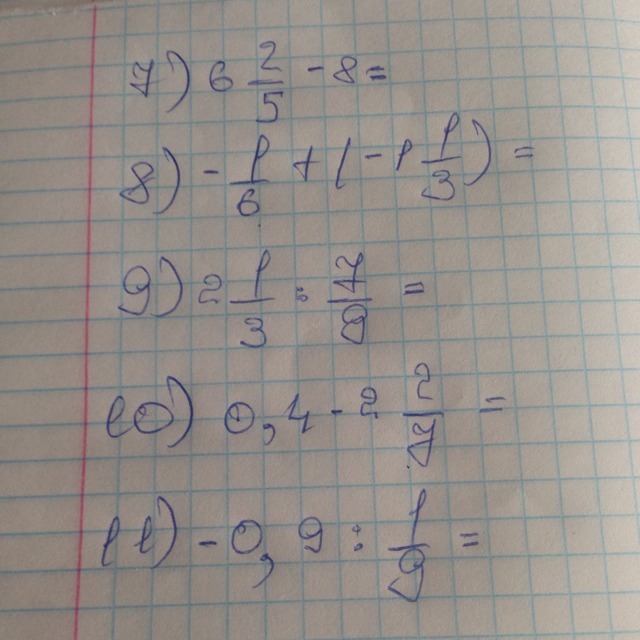 7) 6 2/5 - 8 =
8) - 1/6 + (- 1 1/3) =
9) 2 1/3 : 7/9 =
10) 0,4 - 2 2/7 =
11) - 0,9 : 1/9 =